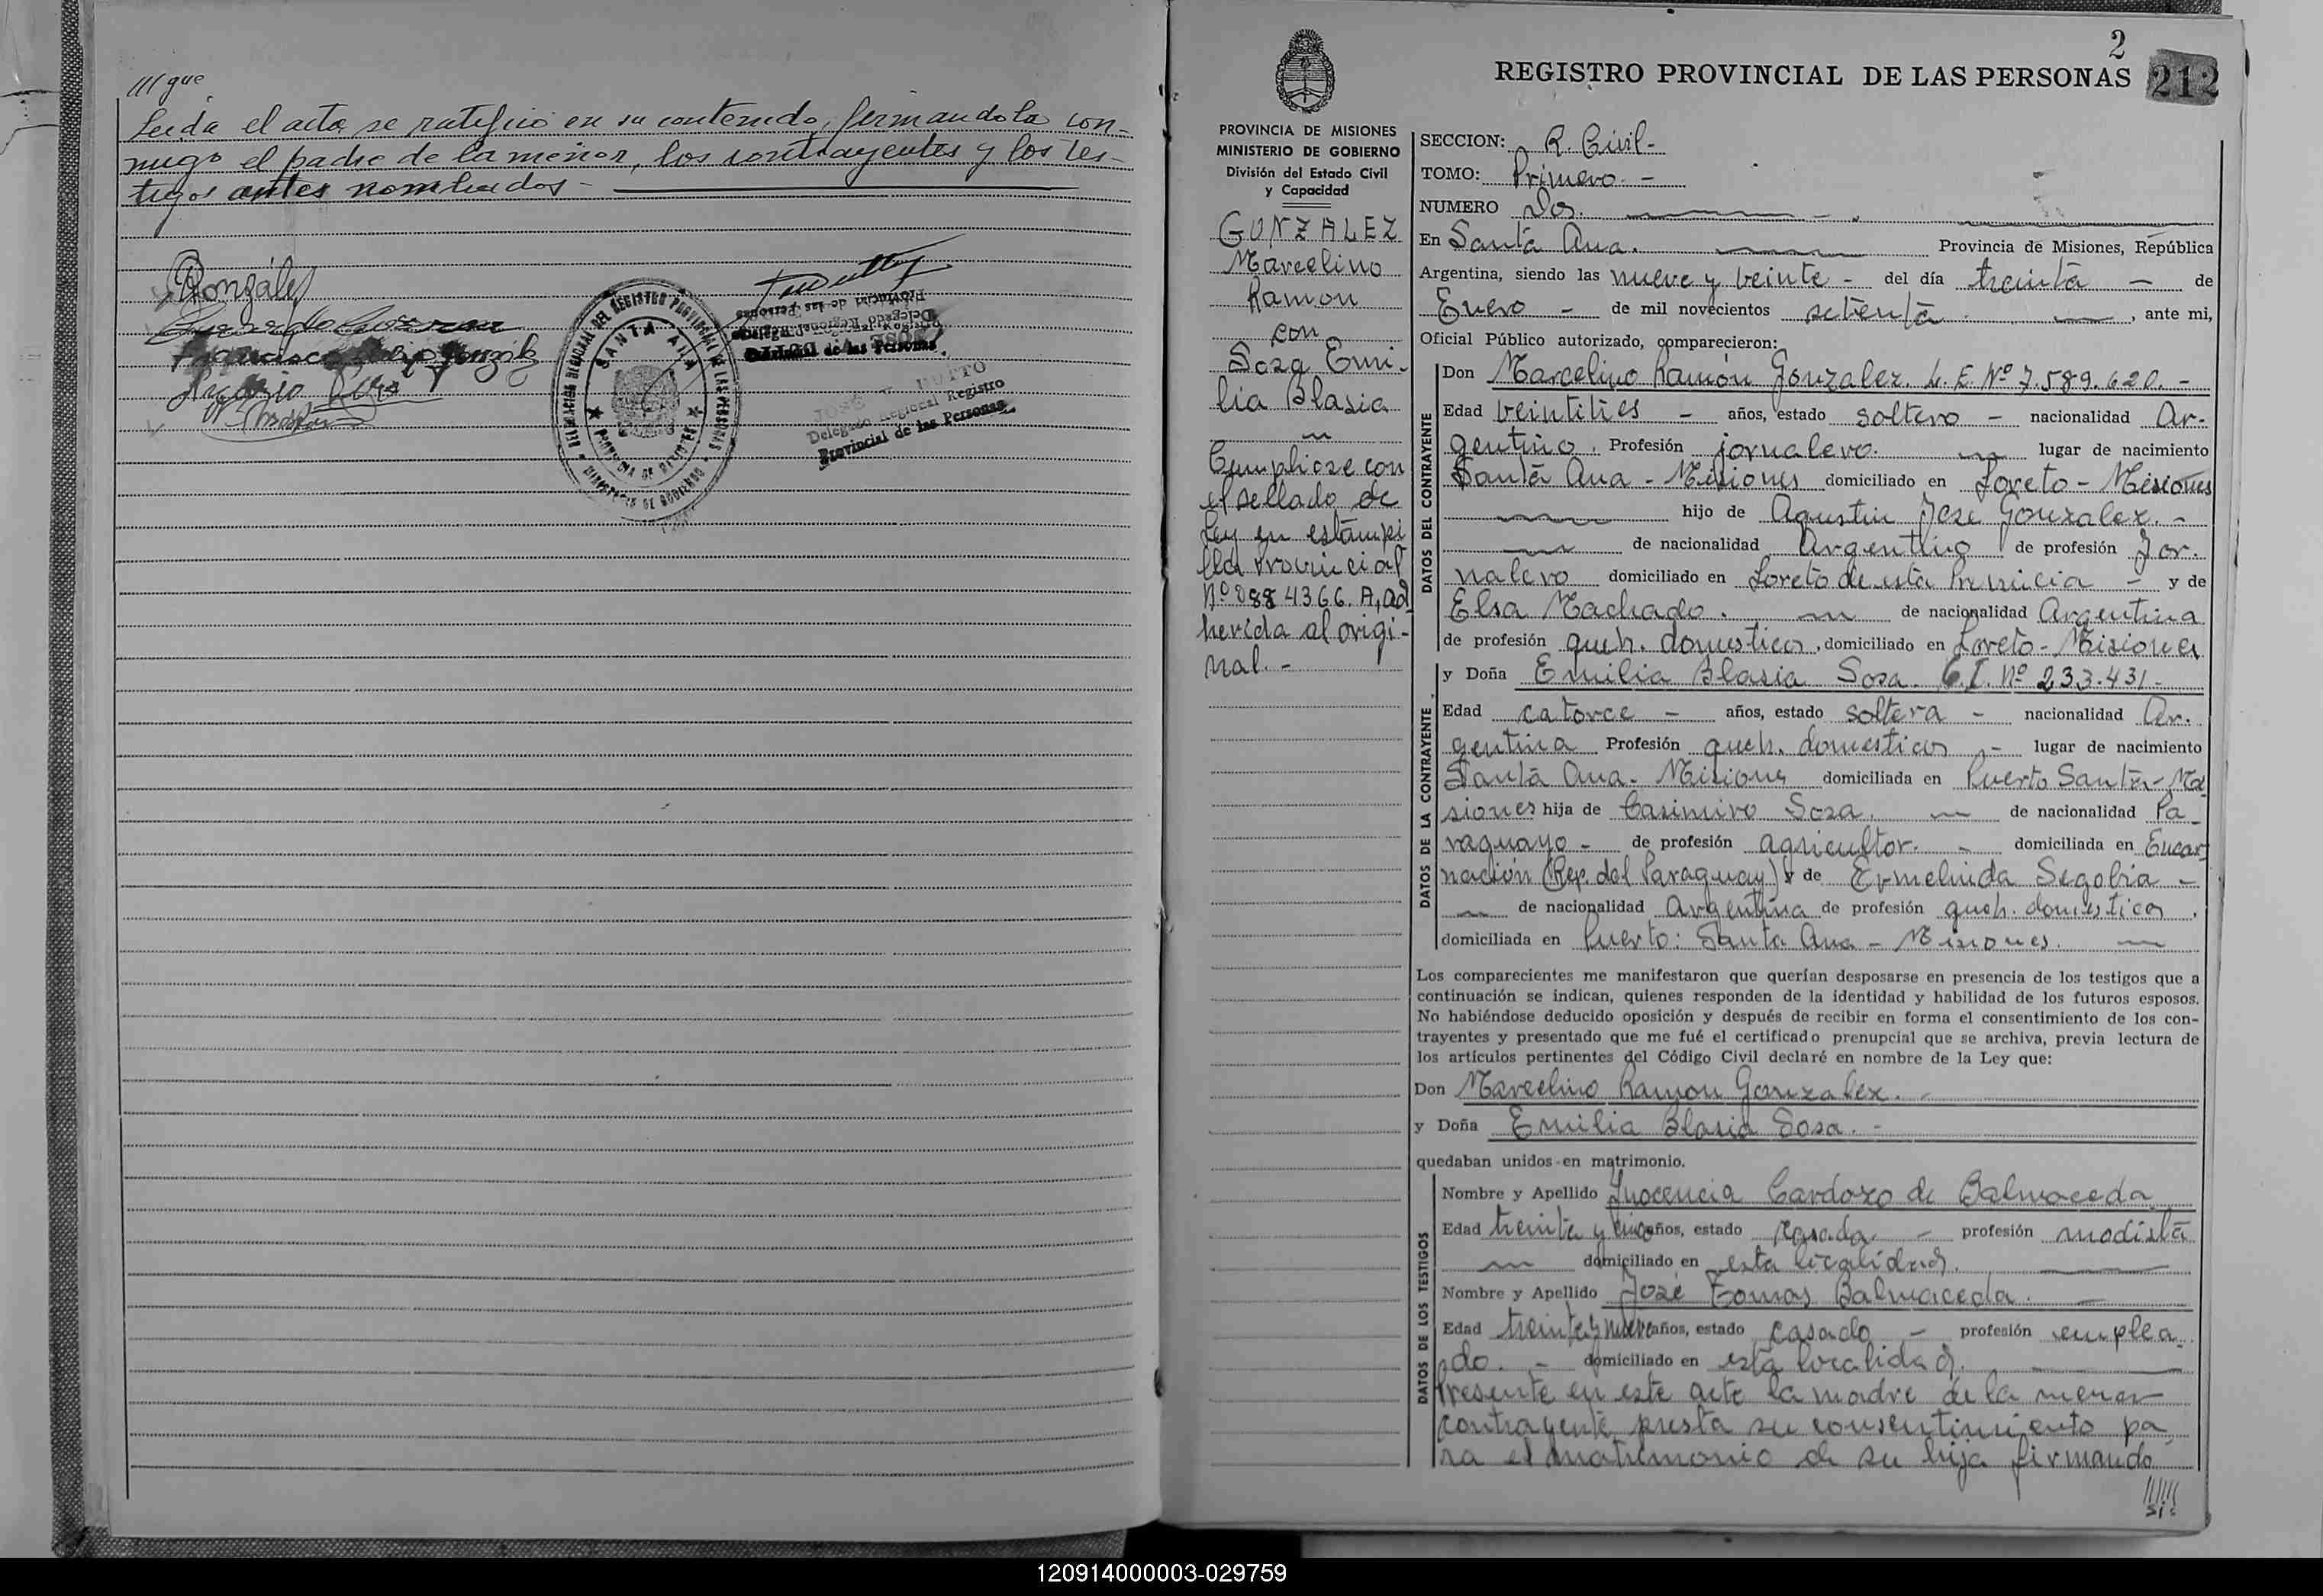 /// que
Leida el acta se ratifico en su contenido, firmandola con-
migo el padre de la menor, los contrayentes y los tes-
tigos antes nombrados -
González
REGISTRO PROVINCIAL DE LAS PERSONAS
SANTA ANA
PROVINCIA DE MISIONES
MINISTERIO DE GOBIERNO
Provincial de las Personas
Delegado Regional Registro
Provincial de las Personas
2
REGISTRO PROVINCIAL DE LAS PERSONAS 212
PROVINCIA DE MISIONES
MINISTERIO DE GOBIERNO
División del Estado Civil
y Capacidad
GONZALEZ
Marcelino
Ramon
con
Sosa Emi-
lia Blasia
Cumpliose con
el sellado de
Ley en estampi
lla Provincial
Nº 0884366. A, ad
herida al origi-
nal. -
SECCION: R. Civil -
TOMO: Primero. -
NUMERO Dos.
En Santa Ana. Provincia de Misiones, República
Argentina, siendo las nueve y veinte - del día treinta - de
Enero - de mil novecientos setenta , ante mi,
Oficial Público autorizado, comparecieron:
DATOS DEL CONTRAYENTE
Don Marcelino Ramón Gonzalez. L. E. Nº 7.589.620. -
Edad veintitres - años, estado soltero - nacionalidad Ar-
gentino. Profesión jornalero. lugar de nacimiento
Santa Ana - Misiones domiciliado en Loreto - Misiones
hijo de Agustin Jose Gonzalez. -
de nacionalidad Argentino de profesión Jor.
nalero domiciliado en Loreto de esta Provincia - y de
Elsa Machado. de nacionalidad Argentina
de profesión queh. domesticos, domiciliado en Loreto - Misiones
DATOS DE LA CONTRAYENTE
y Doña Emilia Blasia Sosa. C.I. Nº 233.431 -
Edad catorce - años, estado soltera - nacionalidad Ar.
gentina Profesión queh. domesticos - lugar de nacimiento
Santa Ana - Misiones domiciliada en Puerto Santa-
siones hija de Casimiro Sosa. de nacionalidad Pa-
raguayo - de profesión agricultor. - domiciliada en Encar-
nación (Rep. del Paraguay) y de Ermelinda Segobia -
de nacionalidad Argentina de profesión queh. domesticos.
domiciliada en Puerto: Santa Ana - Misiones.
Los comparecientes me manifestaron que querían desposarse en presencia de los testigos que a
continuación se indican, quienes responden de la identidad y habilidad de los futuros esposos.
No habiéndose deducido oposición y después de recibir en forma el consentimiento de los con-
trayentes y presentado que me fué el certificado prenupcial que se archiva, previa lectura de
los artículos pertinentes del Código Civil declaré en nombre de la Ley que:
Don Marcelino Ramon Gonzalez. -
y Doña Emilia Blasia Sosa. -
quedaban unidos en matrimonio.
DATOS DE LOS TESTIGOS
Nombre y Apellido Inocencia Cardozo de Balmaceda
Edad treinta y cinco años, estado casada - profesión modista
domiciliado en esta localidad.
Nombre y Apellido José Tomas Balmaceda.
Edad treinta y nueve años, estado casado - profesión emplea-
do. - domiciliado en esta localidad.
Presente en este acto la madre de la menor
contrayente presta su consentimiento pa
ra el matrimonio de su hija firmando
//////
120914000003-029759